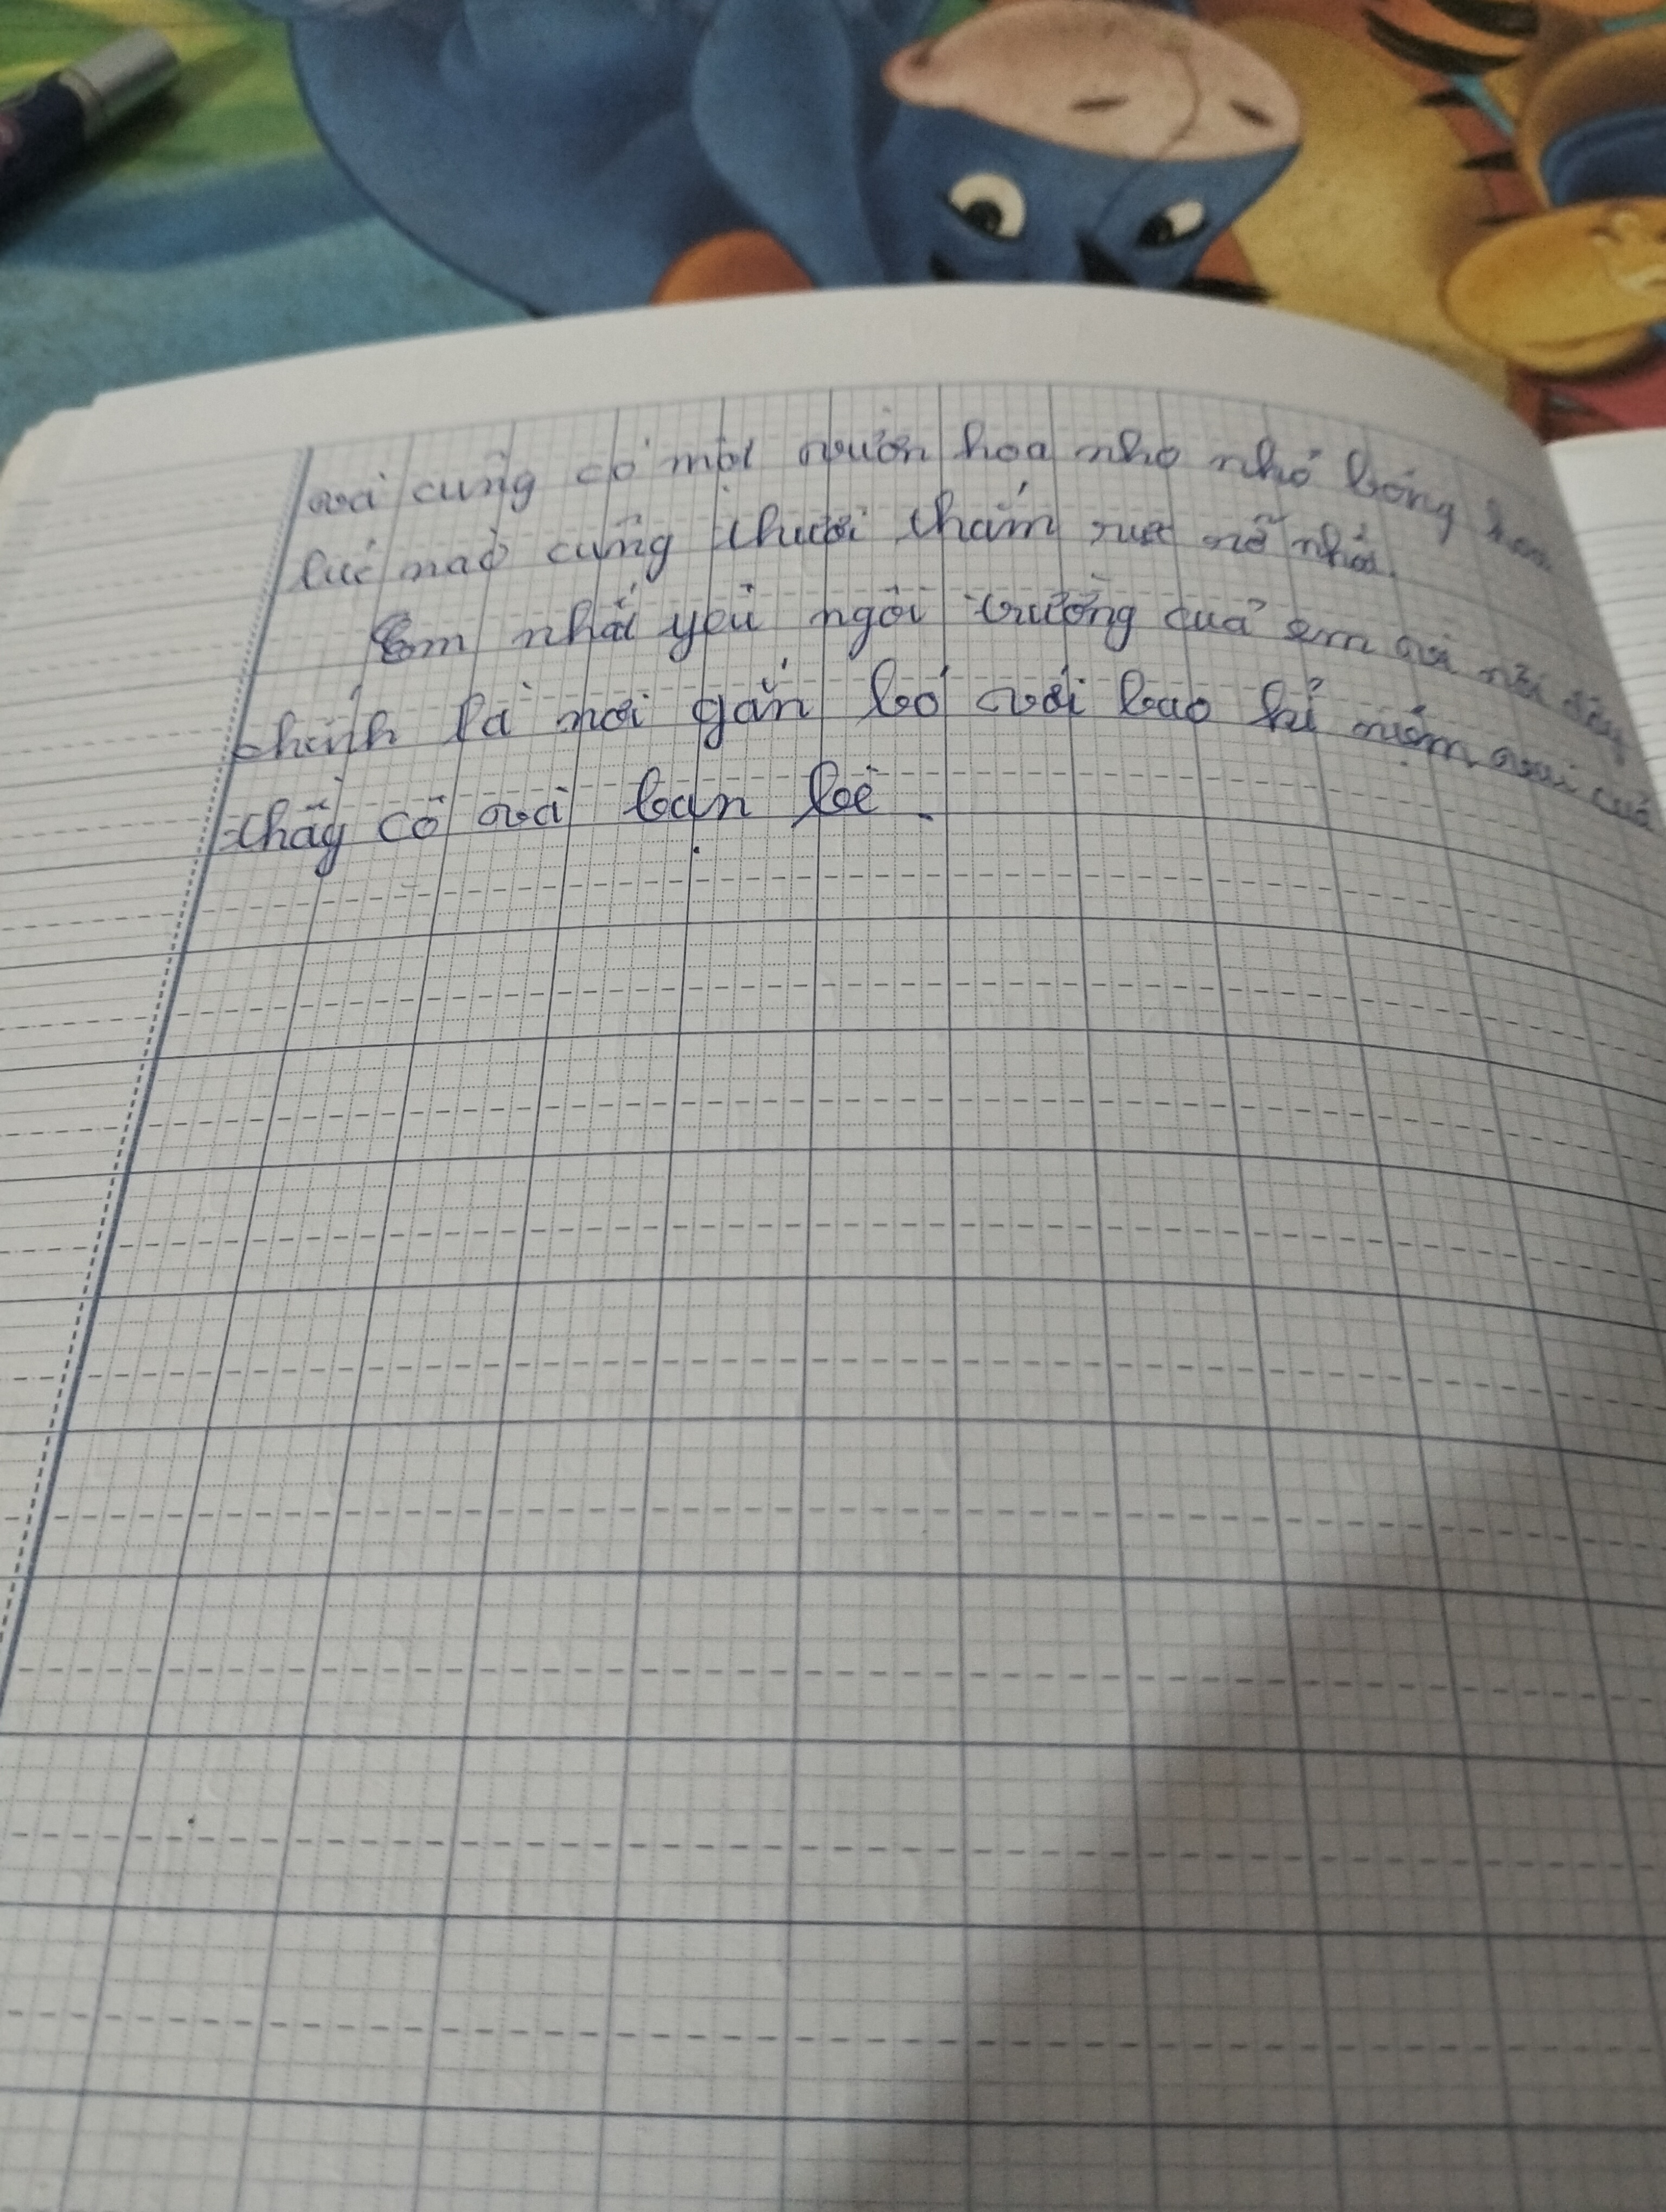 và cũng có một vườn hoa nho nhỏ bông hoa
lúc nào cũng thươi thắm rực rỡ nhỏ.
Em nhất yêu ngôi trường của em vì nơi đây
chính là nơi gắn bó với bao kỉ niệm vui của
thầy cô và bạn bè.